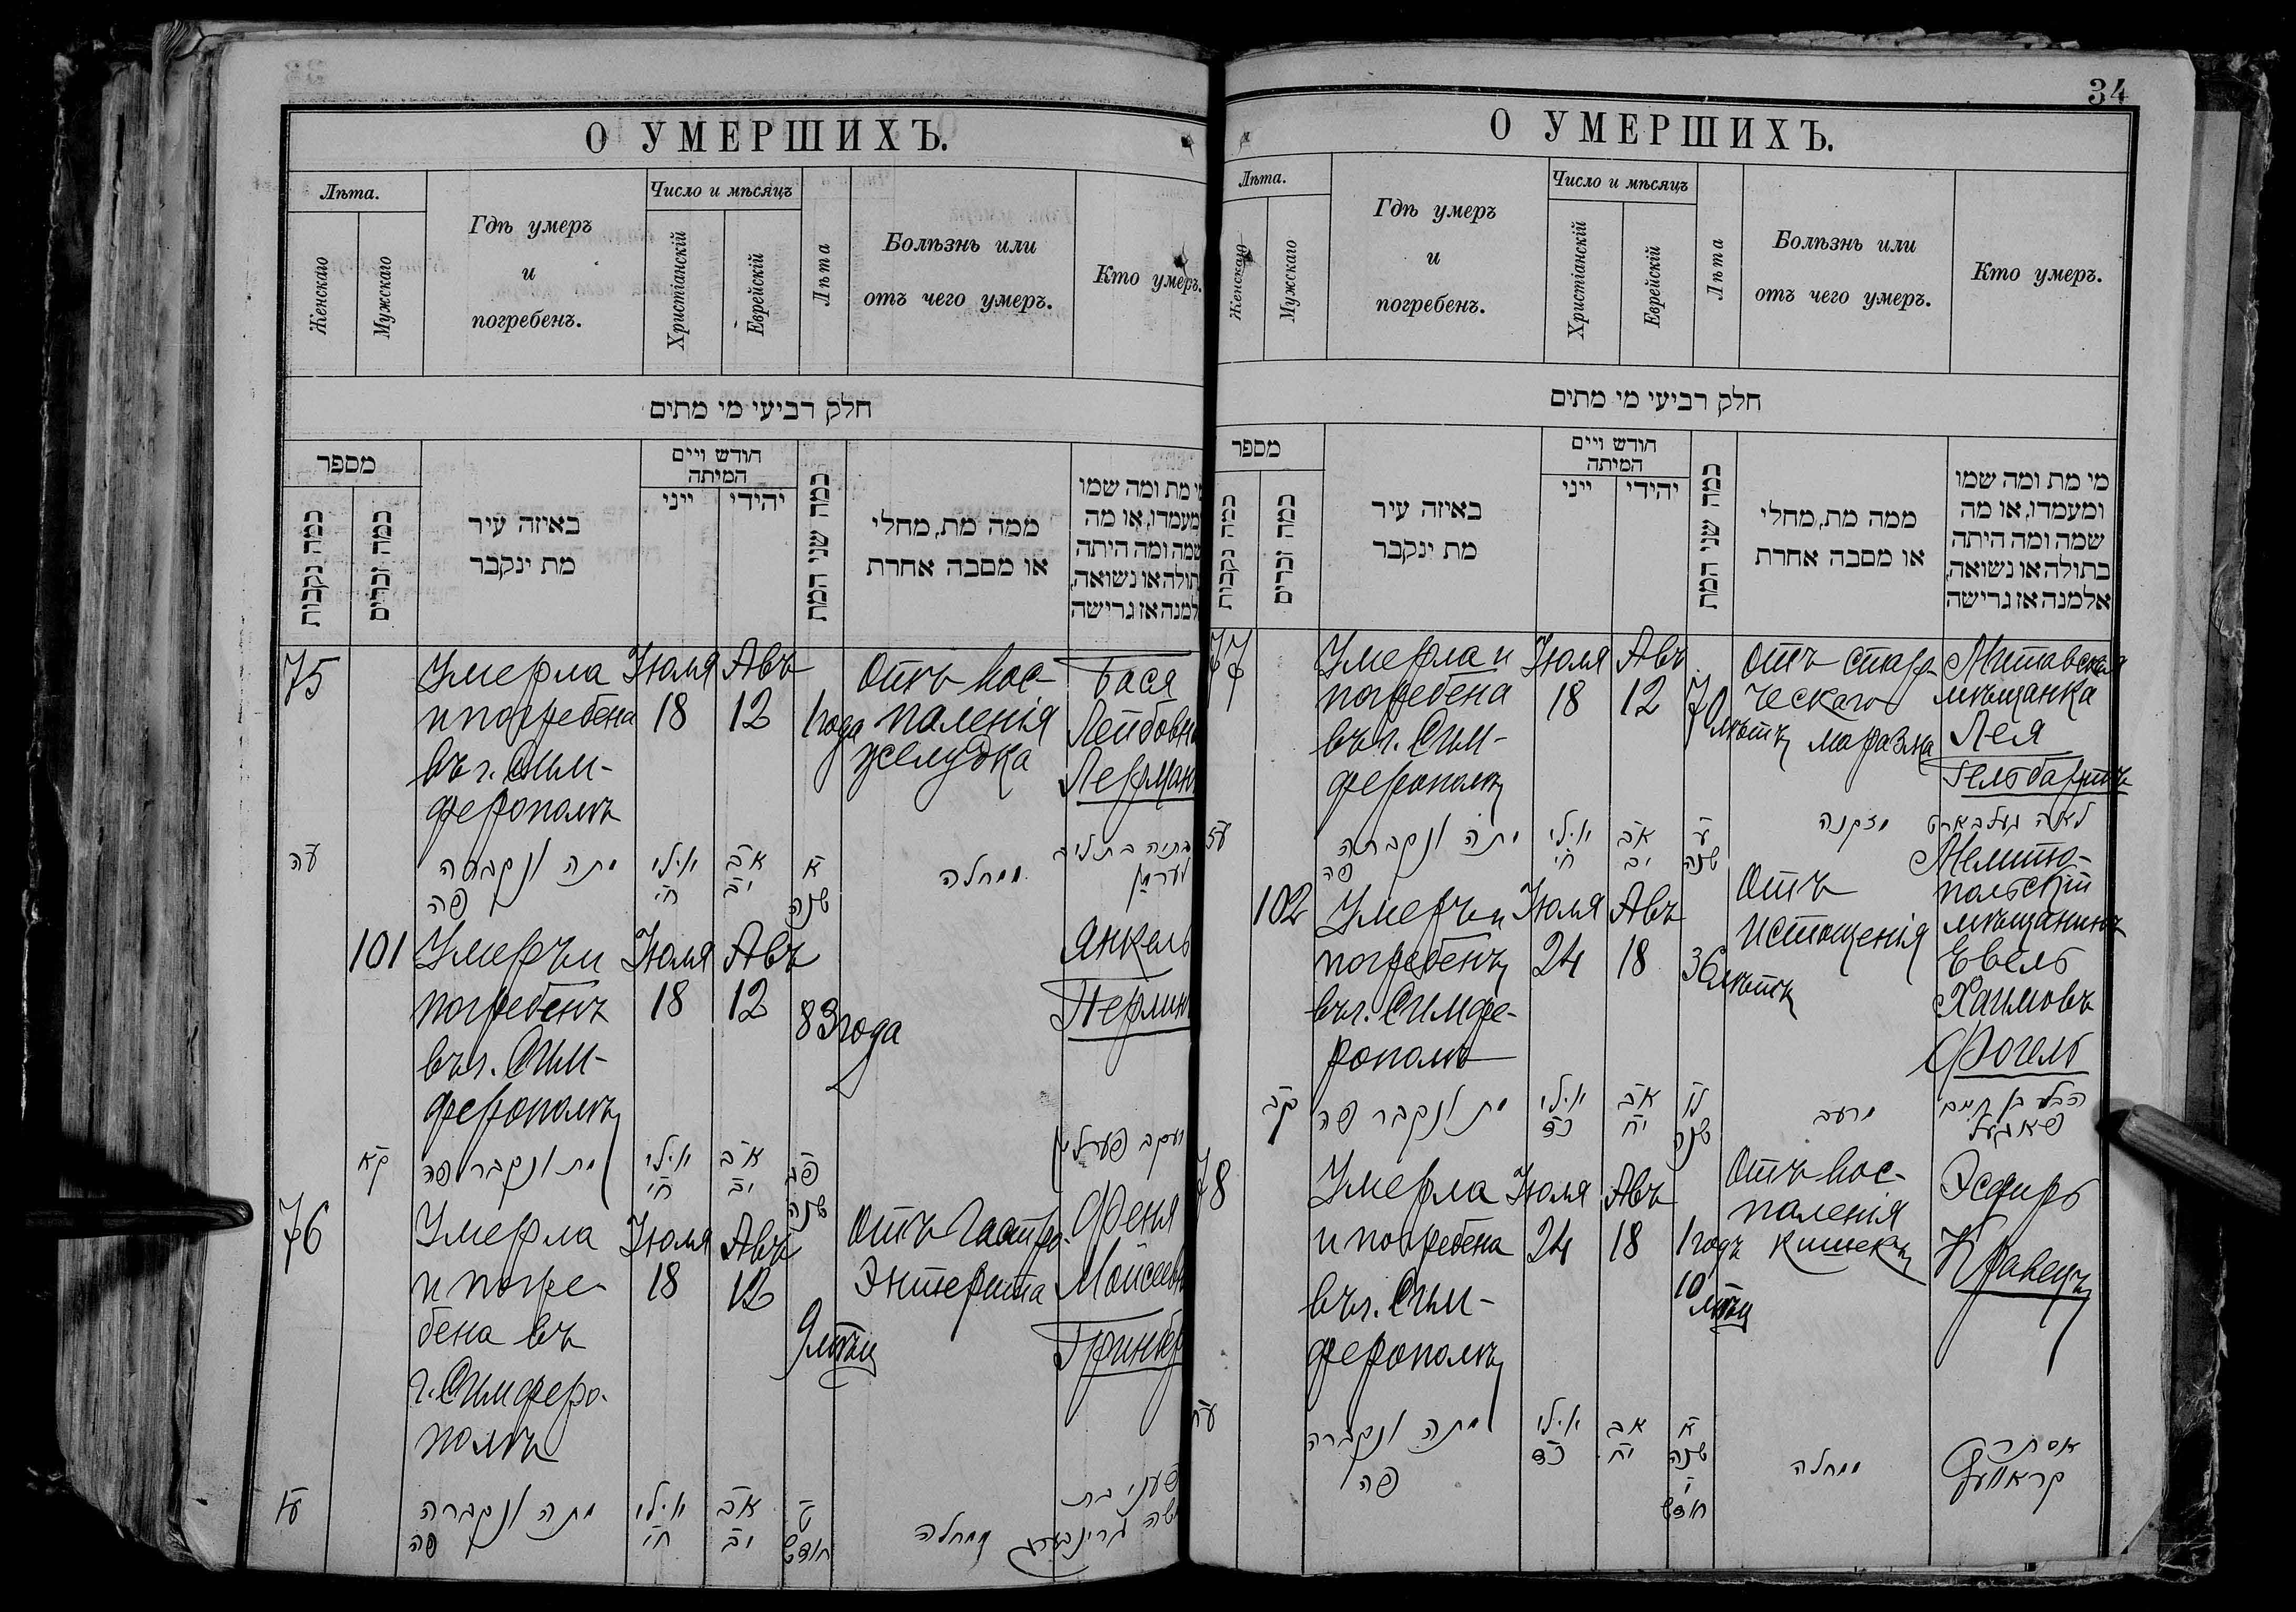 О УМЕРШИХЪ.
Лѣта.
Женскаго
Мужскаго
Гдѣ умеръ
и
погребенъ.
Число и мѣсяцъ
Христіанскій
Еврейскій
Лѣта
Болѣзнь или
отъ чего умеръ.
Кто умеръ.
חלק רביעי מי מתים
מספר
כמה נקבות
כמה זכרים
באיזה עיר
מת ינקבר
חודש ויים
המיתה
ייני
יהידי
כמה שני המת
ממה מת, מחלי
או מסבה אחרת
מי מת ומה שמו
ומעמדו, או מה
שמה ומה היתה
בתולה או נשואה,
אלמנה אז גרישה
75
Умерла
и погребена
въ г. Сим-
ферополѣ
Іюля
18
Авъ
12
1 года
Отъ вос-
паленія
желудка
Бася
Лейбовн
Лерман
עה
מתה ונקברה
פה
יולי
חי
אב
יב
א
שנה
ממחלה
לערמן
101
Умеръ и
погребенъ
въ г. Сим-
ферополѣ
Іюля
18
Авъ
12
83 года
Янкель
Перлин
קא
מת ונקבר פה
יולי
חי
אב
יב
פג
שנה
יעקב פערלין
76
Умерла
и погре-
бена въ
г. Симферо-
полѣ
Іюля
18
Авъ
12
9 мѣсц
Отъ Гастро-
Энтерита
Феня
Моисеевн
Гринбер
עו
מתה ונקברה
פה
יולי
חי
אב
יב
ט
חודש
ממחלה
פעני בת
משה גרינבערג
34
О УМЕРШИХЪ.
Лѣта.
Женскаго
Мужскаго
Гдѣ умеръ
и
погребенъ.
Число и мѣсяцъ
Христіанскій
Еврейскій
Лѣта
Болѣзнь или
отъ чего умеръ.
Кто умеръ.
חלק רביעי מי מתים
מספר
כמה נקבות
כמה זכרים
באיזה עיר
מת ינקבר
חודש ויים
המיתה
ייני
יהידי
כמה שני המת
ממה מת, מחלי
או מסבה אחרת
מי מת ומה שמו
ומעמדו, או מה
שמה ומה היתה
בתולה או נשואה,
אלמנה אז גרישה
77
Умерла и
погребена
въ г. Сим-
ферополѣ
Іюля
18
Авъ
12
70 лѣтъ
Отъ старо-
ческаго
маразма
Митавская
мѣщанка
Лея
Гельбартъ
עז
מתה ונקברה
פה
יולי
חי
אב
יב
ע
שנה
מזקנה
לאה געלבארט
102
Умеръ и
погребенъ
въ г. Симфе-
рополѣ
Іюля
24
Авъ
18
36 лѣтъ
Отъ
истощенія
Мелито-
польскій
мѣщанинъ
Евель
Хаимовъ
Фогель
קב
מת ונקבר פה
יולי
כד
אב
יח
לו
שנה
מרעב
פאגעל
78
Умерла
и погребена
въ г. Сим-
ферополѣ
Іюля
24
Авъ
18
1 годъ
10 мѣсц
Отъ вос-
паленія
кишекъ
Эсфирь
Кравецъ
עח
מתה ונקברה
פה
יולי
כד
אב
יח
א
שנה
י
חודש
ממחלה
אסתר
קראוועץ